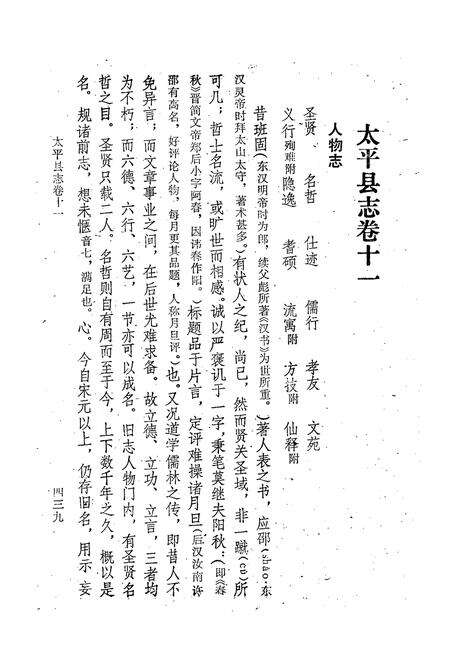 太平县志卷十一
人物志
圣贤　名哲　仕迹　儒行　孝友　文苑
义行殉难附　隐逸　耆硕　流寓附　方技附　仙释附
昔班固(东汉明帝时为郎，续父彪所著《汉书》为世所重。)著人表之书，应邵(shào·东
汉灵帝时拜太山太守，著术甚多。)有状人之纪，尚已，然而贤关圣域，非一蹴(cù)所
可几；哲士名流，或旷世而相感。诚以严褒讥于一字，秉笔莫继夫阳秋：(即《春
秋》晋简文帝郑后小字阿春，因讳春作阳。)标题品于片言，定评难操诸月旦(后汉汝南许
邵有高名，好评论人物，每月更其品题，人称月旦评。)也。又况道学儒林之传，即昔人不
免异言；而文章事业之间，在后世尤难求备。故立德、立功、立言，三者均
为不朽；而六德、六行、六艺，一节亦可以成名。旧志人物门内，有圣贤名
哲之目。圣贤只载二人。名哲则自有周而至于今，上下数千年之久，概以是
名。规诸前志，想未惬音七，满足也。心。今自宋元以上，仍存旧名，用示妄
太平县志卷十一
四三九